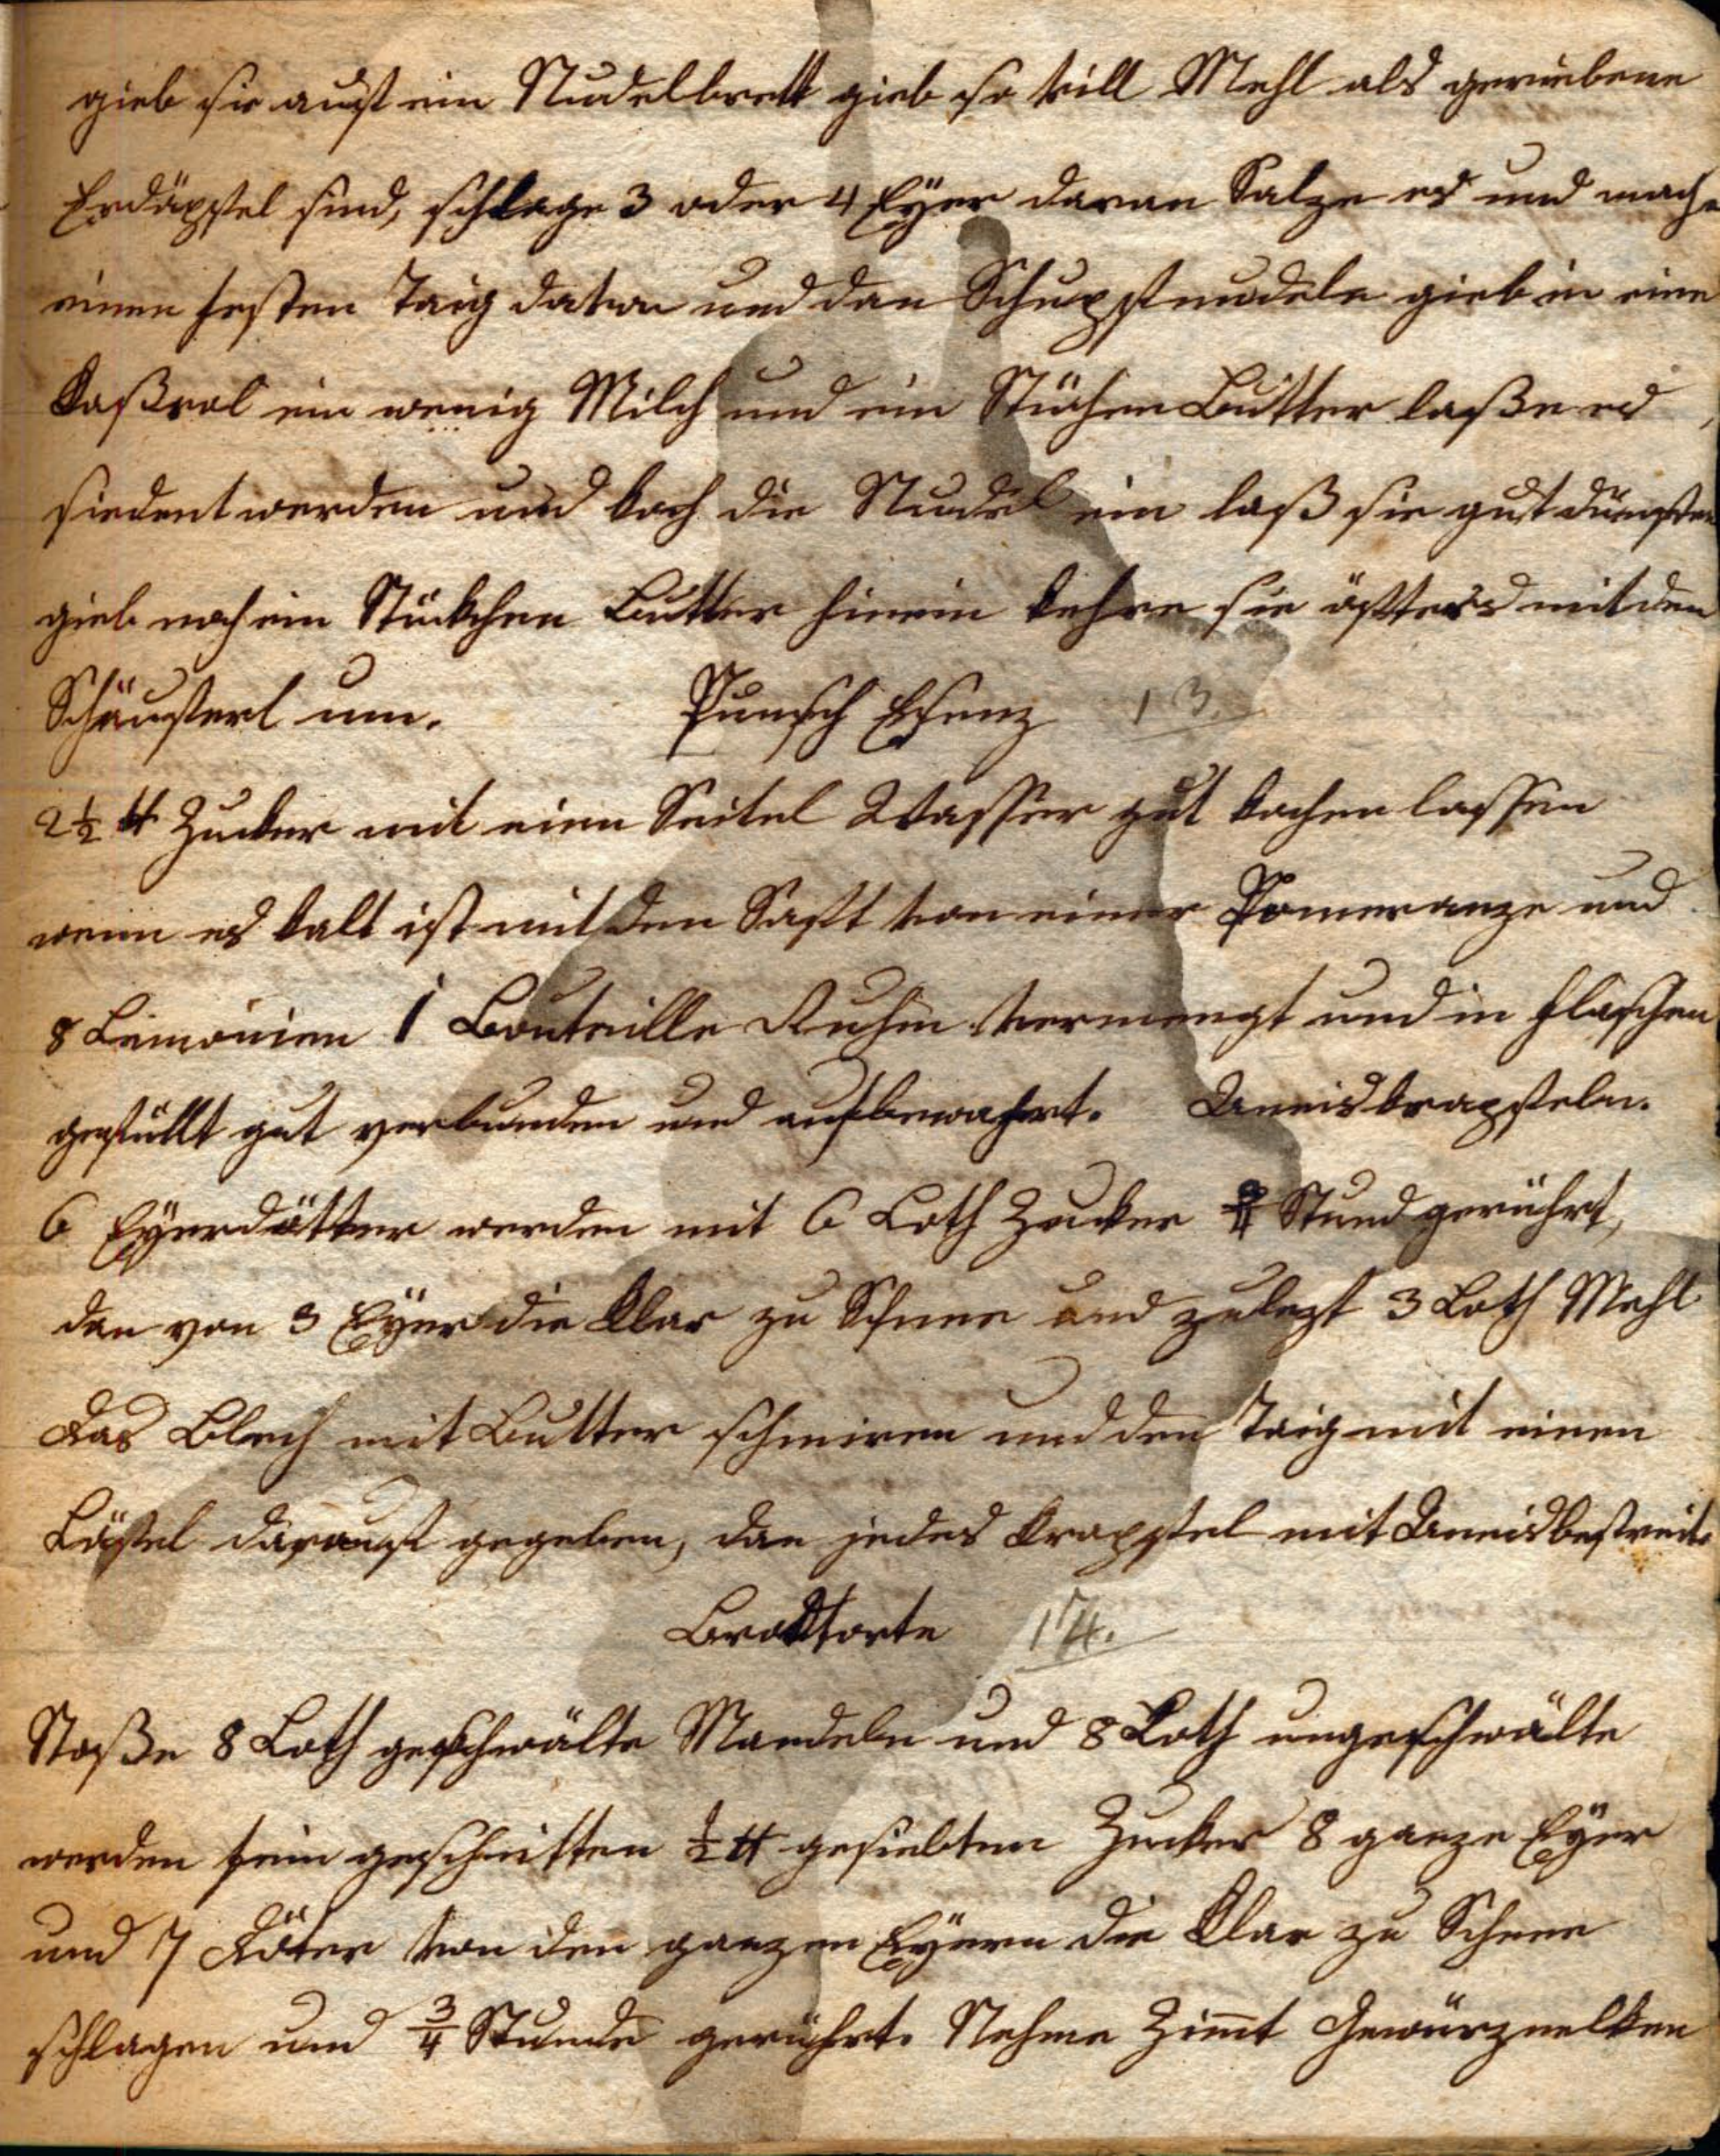 gieb sie auf ein Nudelbrett gieb so vill Mehl als geriebene
Erdäpfel sind, schlage 3 oder 4 Eÿer daran Salze es und mache
einen festen Taig davon und dan Schupfnudeln gieb in eine
Kaßrol ein wenig Milch und ein Stückchen Butter laße es
siedent werden und koch die Nudel ein laß sie gut dünsten
gieb noch ein Stückchen Butter hinein kehre sie öfters mit den
Schäuferl um. Punsch Esenz 13.
2½ ℔ Zucker mit einen Seitel Wasser gut kochen lassen
wenn es kalt ist mit den Saft von einer Pomeranze und
8 Limonien 1 Bouteille Ruhm vermengt und in Flaschen
gefüllt gut verbunden und aufbewahrt. Anneiskrapfeln.
6 Eÿerdötter werden mit 6 Loth Zucker ¾ Stund gerührt,
dan von 3 Eÿer die Klar zu Schnee und zulezt 3 Loth Mehl
das Blech mit Butter schmiren und den Taig mit einen
Löfel darauf gegeben, dan jedes Krapfel mit Anneis bestreit.
Brodtorte 14.
Stoße 8 Loth geschwälte Mandeln und 8 Loth ungeschwälte
werden fein geschnitten ½ ℔ gesiebten Zucker 8 ganze Eÿer
und 7 Döter von den ganzen Eÿern die Klar zu Schnee
schlagen und ¾ Stunde gerührt. Nehme Zimt Gewürznelken